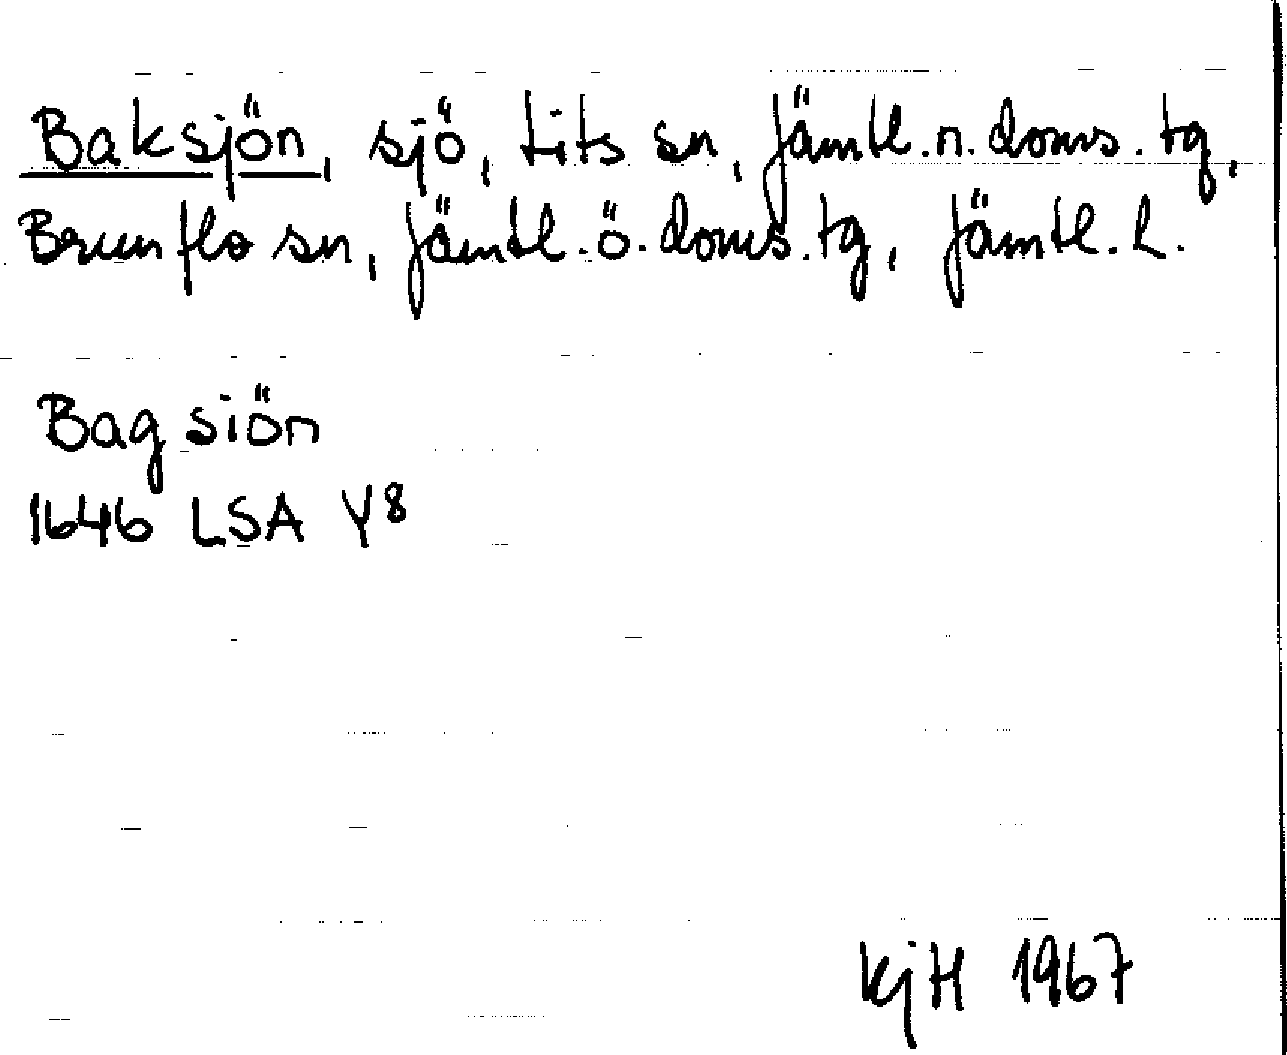 Baksjön, sjö, Lits sn, Jämtl. n. doms. tg,
Brunflo sn, Jämtl. ö. doms. tg, Jämtl. l.
Bagsiön
1646 LSA Y8
KjH 1967